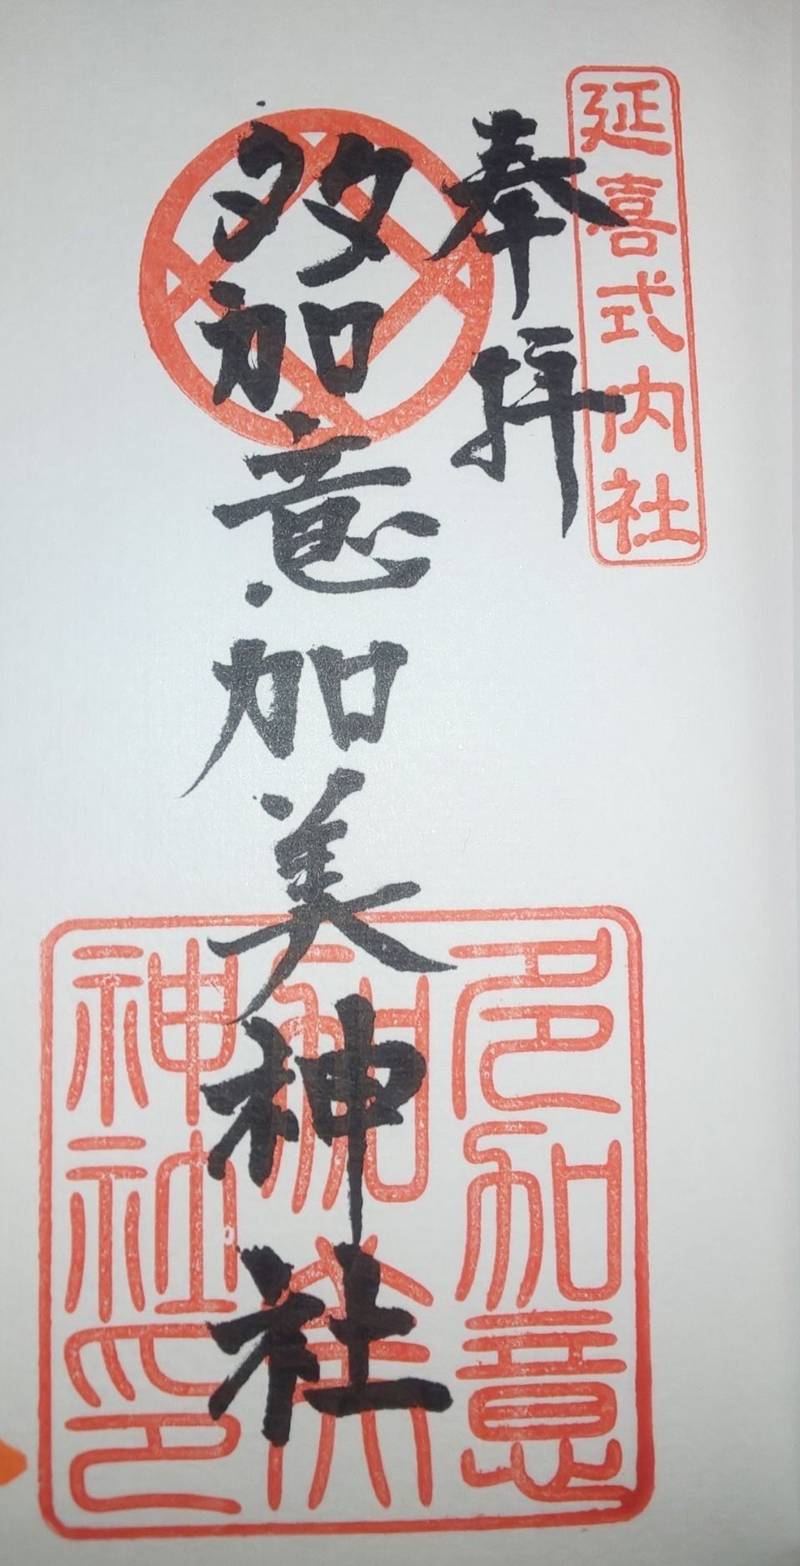 延喜式内社
奉拝
多加意加美神社
多加意
加美
神社印